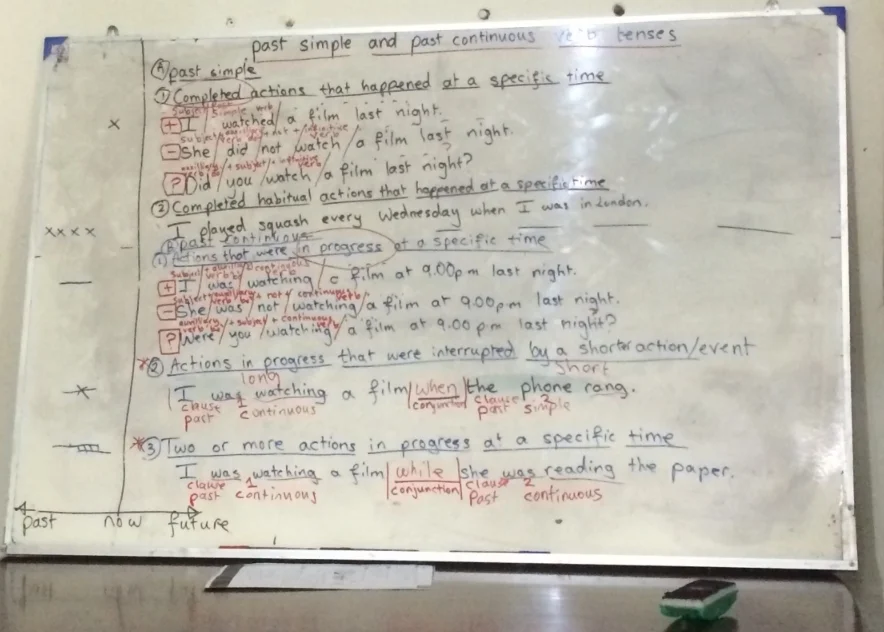 past simple and past continuous verb tenses
Ⓐ past simple
① Completed actions that happened at a specific time
subject / simple verb
[+] I / watched / a film last night.
subject / auxiliary verb + not + / infinitive verb
[-] She / did not / watch / a film last night.
auxiliary verb / + subject / + infinitive verb
[?] Did / you / watch / a film last night?
② Completed habitual actions that happened at a specific time
I played squash every Wednesday when I was in London.
Ⓑ past continuous
① Actions that were in progress at a specific time
subject + auxiliary verb be continuous verb
[+] I / was / watching / a film at 9.00pm last night.
subject / auxiliary verb be + not / continuous verb
[-] She / was / not / watching / a film at 9.00pm last night.
auxiliary verb be / + subject / + continuous verb
[?] Were / you / watching / a film at 9.00 pm last night?
*② Actions in progress that were interrupted by a shorter action/event
long short
I was watching a film / when / the phone rang.
clause 1 conjunction clause 2
past continuous past simple
*③ Two or more actions in progress at a specific time
I was watching a film / while / she was reading the paper.
clause 1 conjunction clause 2
past continuous past continuous
x
xxxx
x
past now future